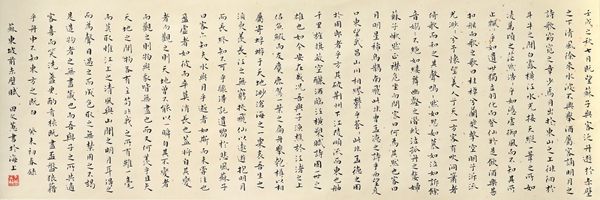 壬戌之秋七月既望蘇子與客泛舟遊於赤壁
之下清風徐來水波不興舉酒屬客誦明月之
詩歌窈窕之章少焉月出於東山之上徘徊於
斗牛之間白露橫江水光接天縱一葦之所如
凌萬頃之茫然浩浩乎如馮虛御風而不知其所
止飄飄乎如遺世獨立羽化而登仙於是飲酒樂甚
扣舷而歌之歌曰桂棹兮蘭槳擊空明兮泝流
光渺渺兮予懷望美人兮天一方客有吹洞簫者
倚歌而和之其聲嗚嗚然如怨如慕如泣如訴餘
音嫋嫋不絕如縷舞幽壑之潛蛟泣孤舟之嫠婦
蘇子愀然正襟危坐而問客曰何為其然也客曰
月明星稀烏鵲南飛此非曹孟德之詩乎西望夏
口東望武昌山川相繆鬱乎蒼蒼此非孟德之困
於周郎者乎方其破荊州下江陵順流而東也舳艫
千里旌旗蔽空釃酒臨江橫槊賦詩固一世之
雄也而今安在哉況吾與子漁樵於江渚之上
侶魚蝦而友麋鹿駕一葉之扁舟舉匏樽以相
屬寄蜉蝣於天地渺滄海之一粟哀吾生之
須臾羨長江之無窮挾飛仙以遨遊抱明月
而長終知不可乎驟得託遺響於悲風蘇子
曰客亦知夫水與月乎逝者如斯而未嘗往也
盈虛者如彼而卒莫消長也蓋將自其變
者而觀之則天地曾不能以一瞬自其不變者
而觀之則物與我皆無盡也而又何羨乎且夫
天地之間物各有主苟非吾之所有雖一毫
而莫取惟江上之清風與山間之明月耳得之
而為聲目遇之而成色取之無禁用之不竭
是造物者之無盡藏也而吾與子之所共適
客喜而笑洗盞更酌肴核既盡杯盤狼籍
相與枕藉乎舟中不知東方之既白 癸未初春錄
蘇東坡前赤壁賦 書於海上